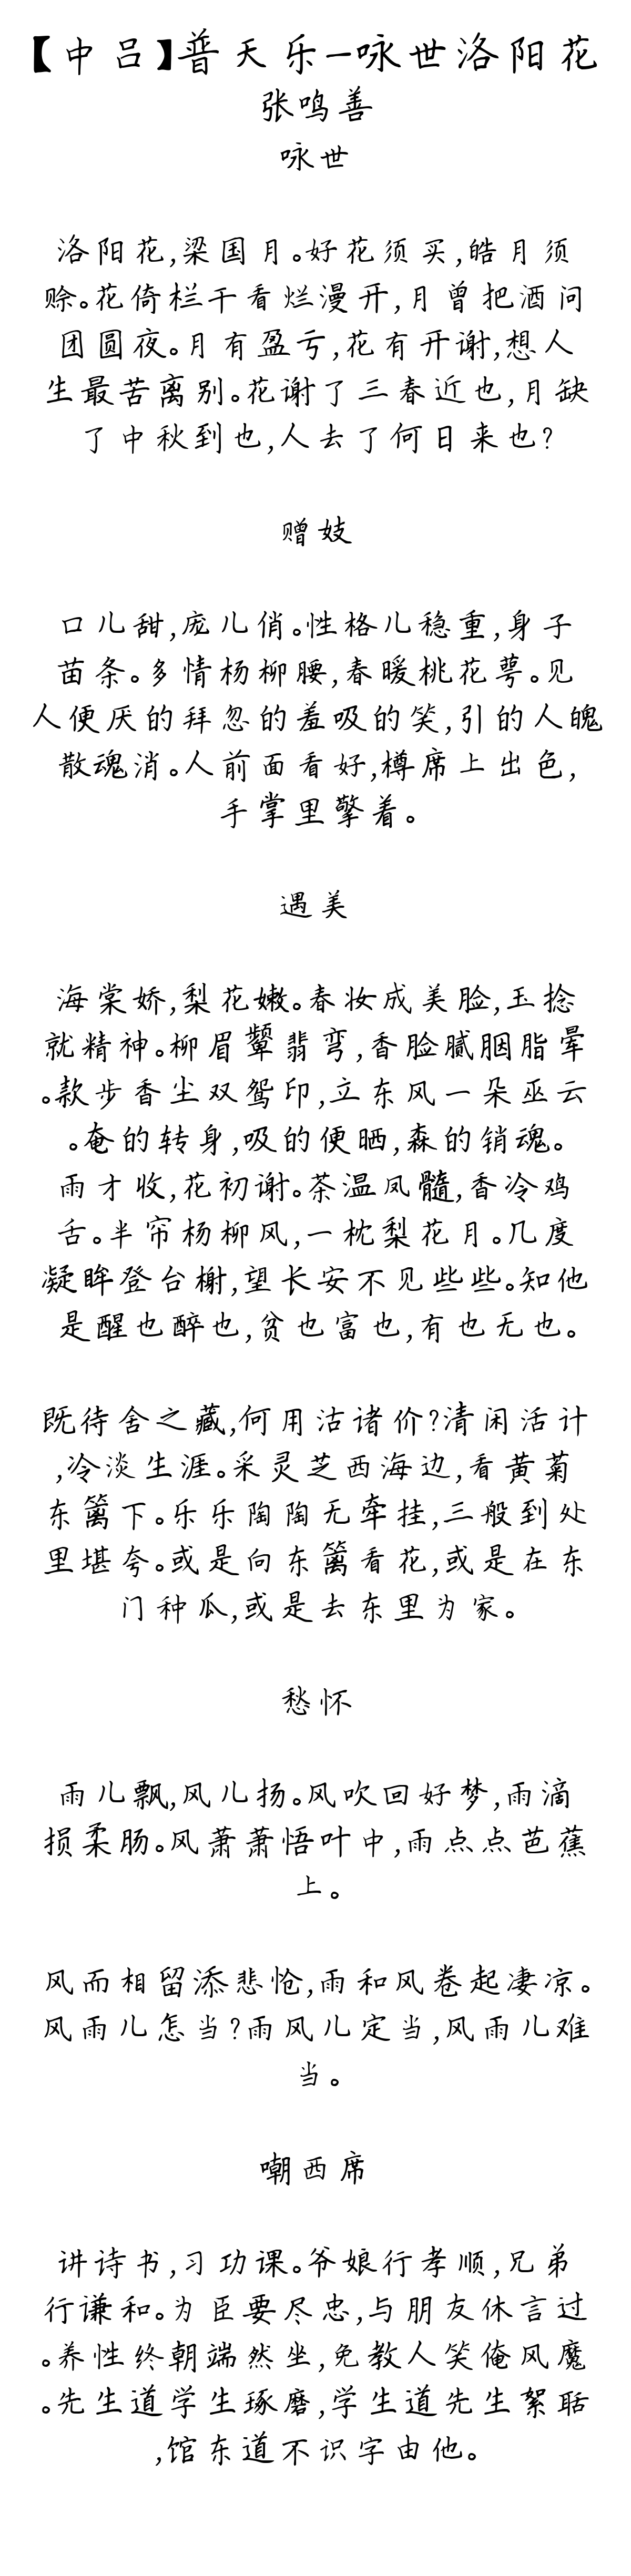 【中吕】普天乐-咏世洛阳花
张鸣善
咏世
洛阳花,梁国月。好花须买,皓月须
赊。花倚栏干看烂漫开,月曾把酒问
团圆夜。月有盈亏,花有开谢,想人
生最苦离别。花谢了三春近也,月缺
了中秋到也,人去了何日来也?
赠妓
口儿甜,庞儿俏。性格儿稳重,身子
苗条。多情杨柳腰,春暖桃花萼。见
人便厌的拜忽的羞吸的笑,引的人魄
散魂消。人前面看好,樽席上出色,
手掌里擎着。
遇美
海棠娇,梨花嫩。春妆成美脸,玉捻
就精神。柳眉颦翡弯,香脸腻胭脂晕
。款步香尘双鸳印,立东风一朵巫云
。奄的转身,吸的便哂,森的销魂。
雨才收,花初谢。茶温凤髓,香冷鸡
舌。半帘杨柳风,一枕梨花月。几度
凝眸登台榭,望长安不见些些。知他
是醒也醉也,贫也富也,有也无也。
既待舍之藏,何用沽诸价?清闲活计
,冷淡生涯。采灵芝西海边,看黄菊
东篱下。乐乐陶陶无牵挂,三般到处
里堪夸。或是向东篱看花,或是在东
门种瓜,或是去东里为家。
愁怀
雨儿飘,风儿扬。风吹回好梦,雨滴
损柔肠。风萧萧悟叶中,雨点点芭蕉
上。
风而相留添悲怆,雨和风卷起凄凉。
风雨儿怎当?雨风儿定当,风雨儿难
当。
嘲西席
讲诗书,习功课。爷娘行孝顺,兄弟
行谦和。为臣要尽忠,与朋友休言过
。养性终朝端然坐,免教人笑俺风魔
。先生道学生琢磨,学生道先生絮聒
,馆东道不识字由他。